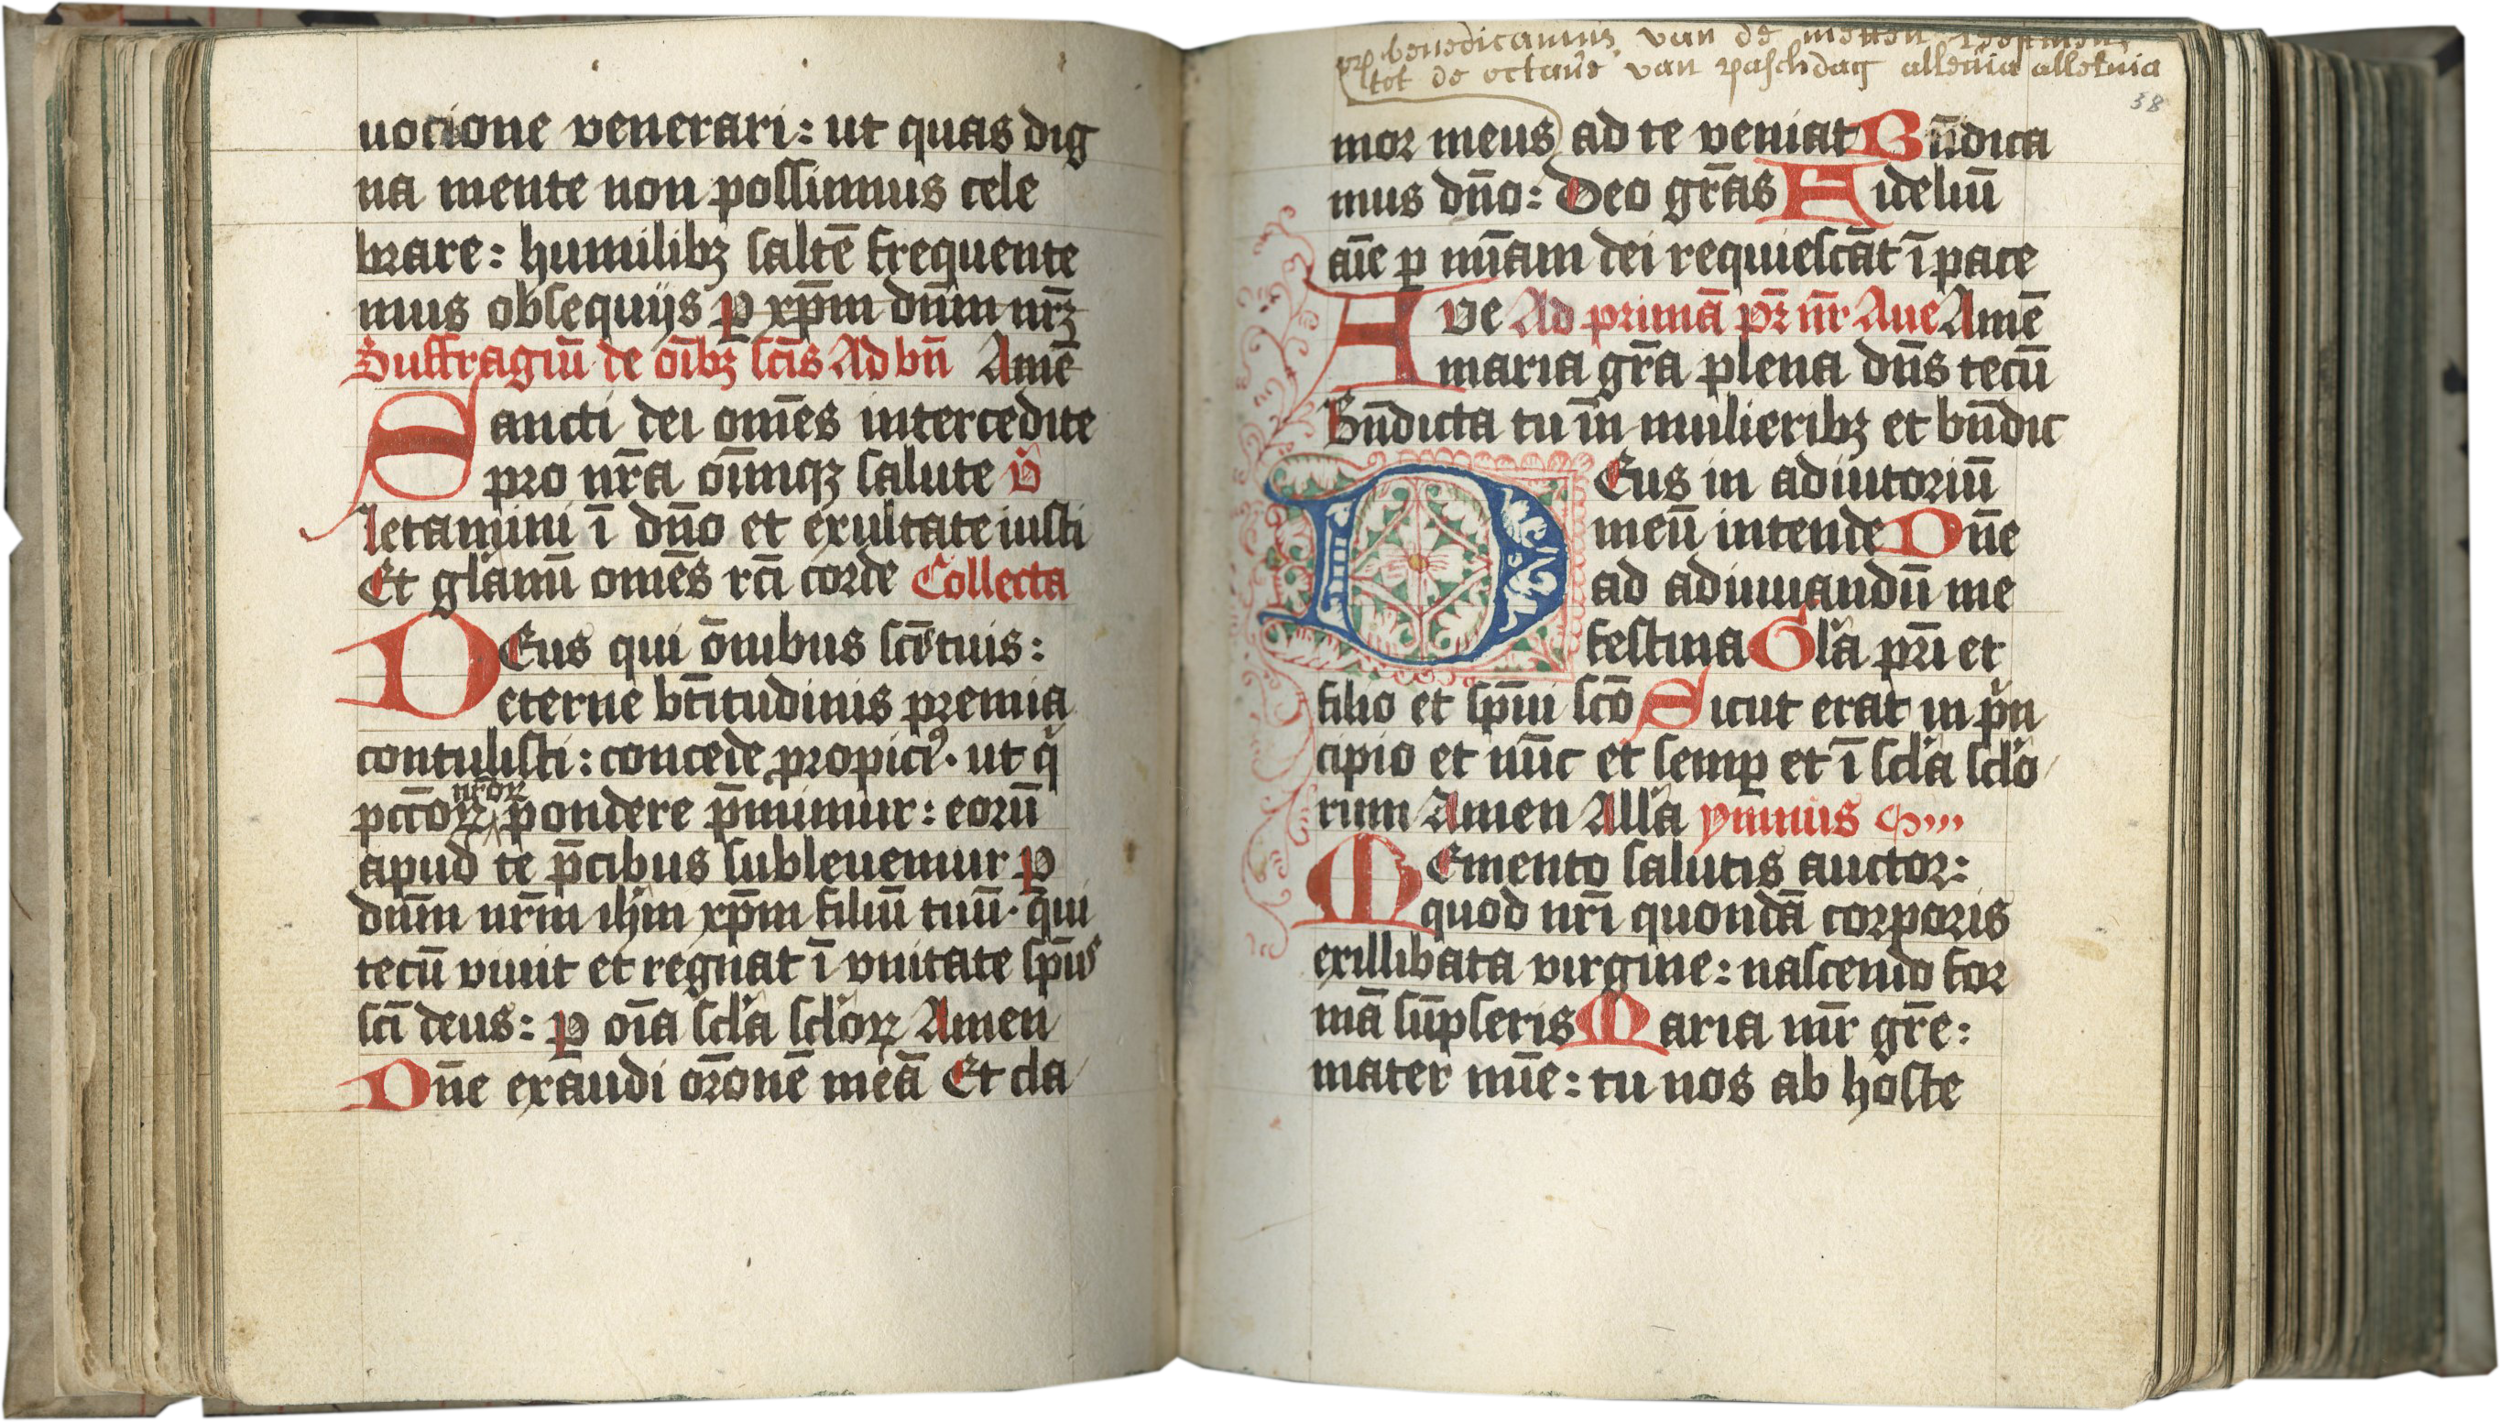 uocione venerari: ut quas dig
na mente non possumus cele
brare: humilibꝫ saltē frequente
mus obsequijs ꝑ xp̄m dn̄m nr̄ꝫ
Suffragiū de oībꝫ sctīs Ad bn̄ Amē
Sancti dei om̄es intercedite
pro nr̄a oīmqꝫ salute v̄
letamini ī dn̄o et exultate iusti
Et gl̄amī om̄es rc̄i corde Collecta
DEus qui ōnibus sctīs tuis:
eterne bt̄itudinis premia
contulisti: concede propiciꝰ· ut q̄
nr̄oꝝ
pctōꝝ pondere p̄mimur: eorū
apud te p̄cibus subleuemur ꝑ
dn̄m nr̄m ihm̄ xp̄m filiū tuū· q̄ui
tecū viuit et regnat ī vnitate sp̄us
sc̄i deus: ꝑ oīa scl̄a scl̄oꝝ Amen
Dn̄e exaudi or̄onē meā Et cla
benedicamus van de metten
tot de octaue van paschdag alleluia alleluia
38
mor meus ad te veniat Bn̄dica
mus dn̄o: Deo gr̄as Fideliū
aīe ꝑ mīam dei requiescāt ī pace
AVe Ad primā pr̄ nr̄ Aue Amē
maria gr̄a plena dn̄s tecū
Bn̄dicta tu īn mulieribꝫ et bn̄dic
DEus in adiutoriū
meū intende Dn̄e
ad adiuuandū me
festina Gl̄a pr̄i et
filio et sp̄ui sctō Sicut erat in p̄n
cipio et nūc et semꝑ et ī scl̄a scl̄o
rum Amen All̄a ymnus
MEmento salutis auctor:
quod nr̄i quondā corporis
exillibata virgine: nascendo for
mā sūpseris Maria mr̄ gr̄e:
mater mīe: tu nos ab hoste